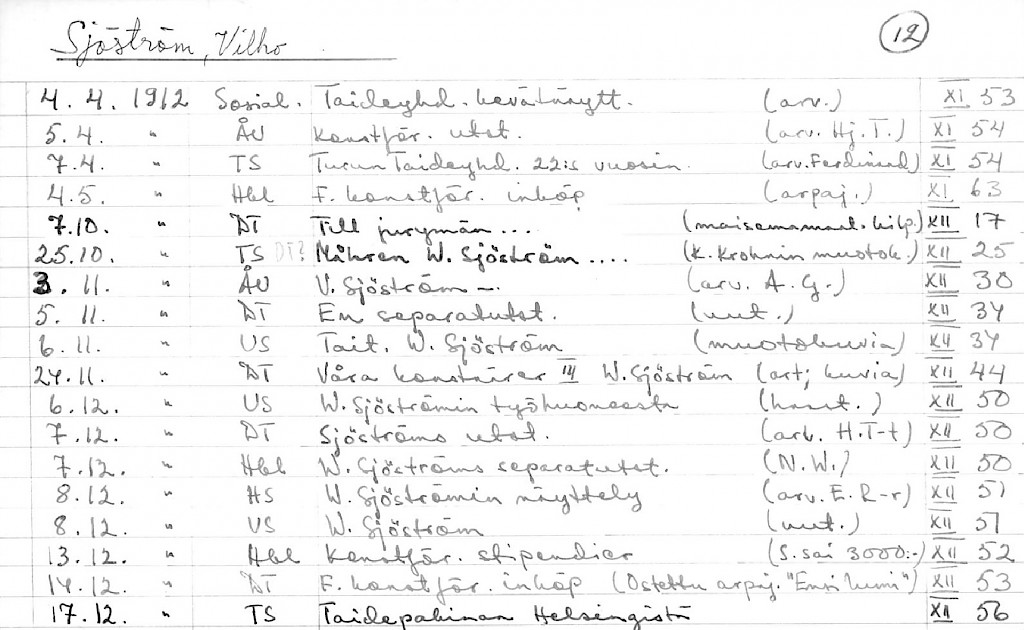 Sjöström, Vilho 12
4. 4. 1912 Sosial. Taideyhd. kevätnäytt. (arv.) XI 53
5. 4. " ÅU Konstför. utst. (arv. Hj. T.) XI 54
7. 4. " TS Turun Taideyhd. 22:s vuosin. (arv. Ferdinand) XI 54
4. 5. " Hbl F. konstför. inköp (arpaj.) XI 63
7. 10. " DT Till jurymän ... (maisemamaal. kilp.) XII 17
25. 10. " TS DT? Målaren W. Sjöström .... (K. Krohnin muotok.) XII 25
3. 11. " ÅU V. Sjöström – . (arv. A. G.) XII 30
5. 11. " DT En separatutst. (uut.) XII 34
6. 11. " US Tait. W. Sjöström (muotokuvia) XII 34
24. 11. " DT Våra konstnärer III W. Sjöström (art; kuvia) XII 44
6. 12. " US W. Sjöströmin työhuoneesta (haast.) XII 50
7. 12. " DT Sjöströms utst. (arv. H. T-t) XII 50
7. 12. " Hbl W. Sjöströms separatutst. (N. W.) XII 50
8. 12. " HS W. Sjöströmin näyttely (arv. E. R-r) XII 51
8. 12. " US W. Sjöström (uut.) XII 51
13. 12. " Hbl Konstför. stipendier (S. sai 3000:-) XII 52
14. 12. " DT F. konstför. inköp (Ostettu arpaj. "Ensi lumi") XII 53
17. 12. " TS Taidepakinan Helsingistä XII 56